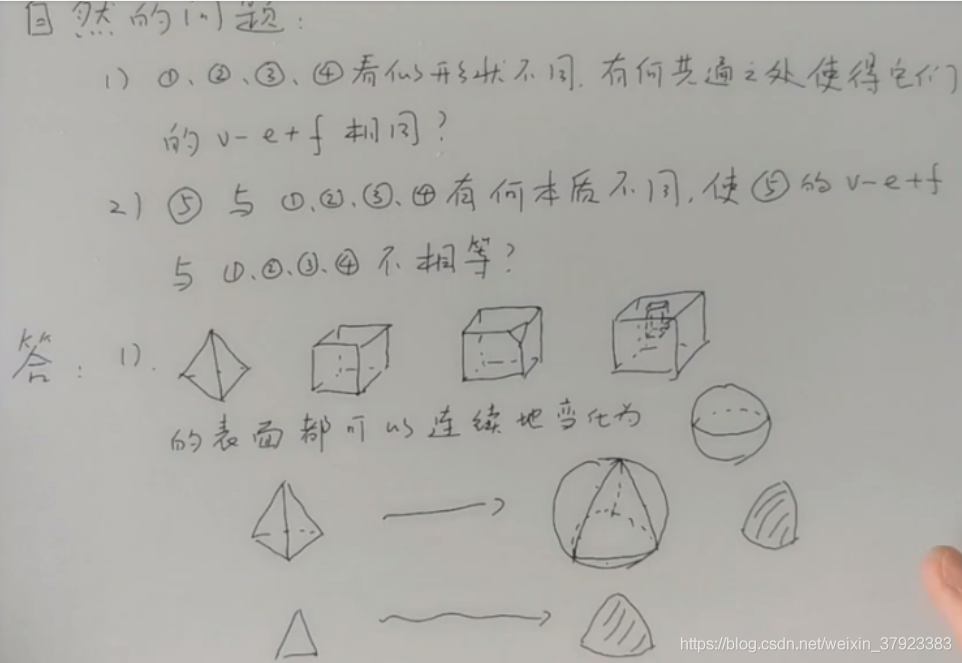 自然的问题:
1) ①、②、③、④看似形状不同,有何共通之处使得它们
的 v-e+f 相同?
2) ⑤ 与 ①、②、③、④有何本质不同,使⑤的 v-e+f
与 ①、②、③、④ 不相等?
答: 1).
的表面都可以连续地变化为
https://blog.csdn.net/weixin_37923383